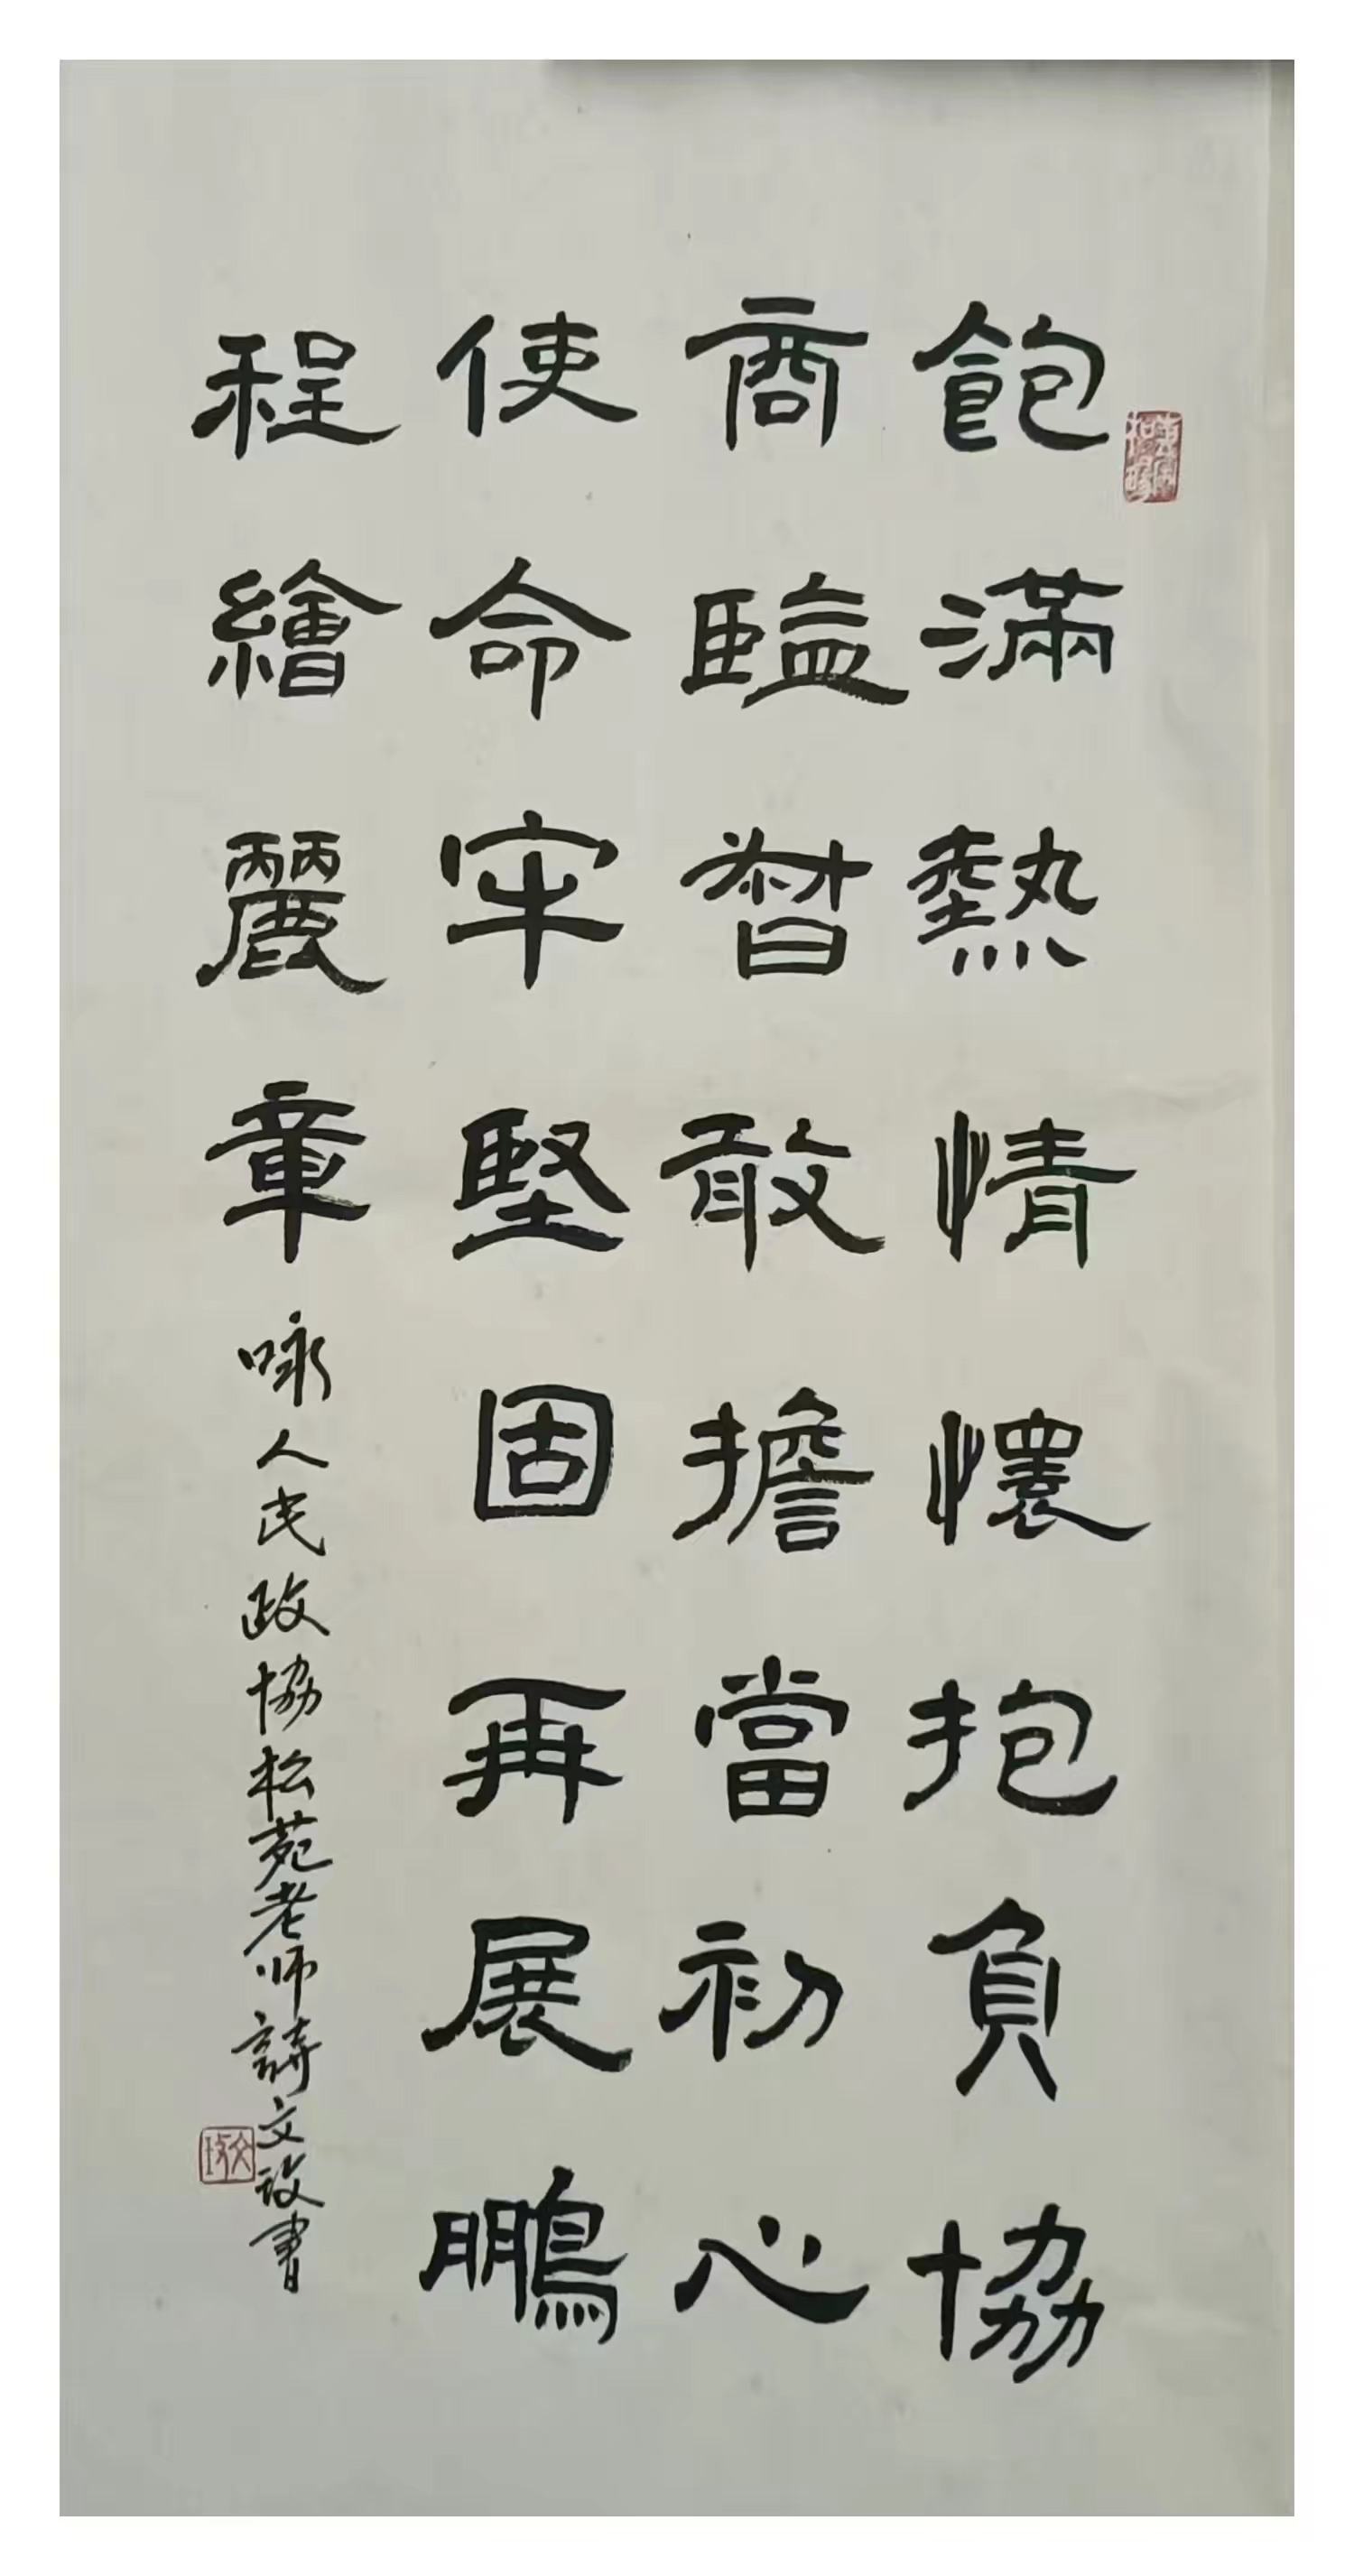 飽滿熱情懷抱負協
商監督敢擔當初心
使命牢堅固再展鵬
程繪麗章
咏人民政協松苑老师詩文改書